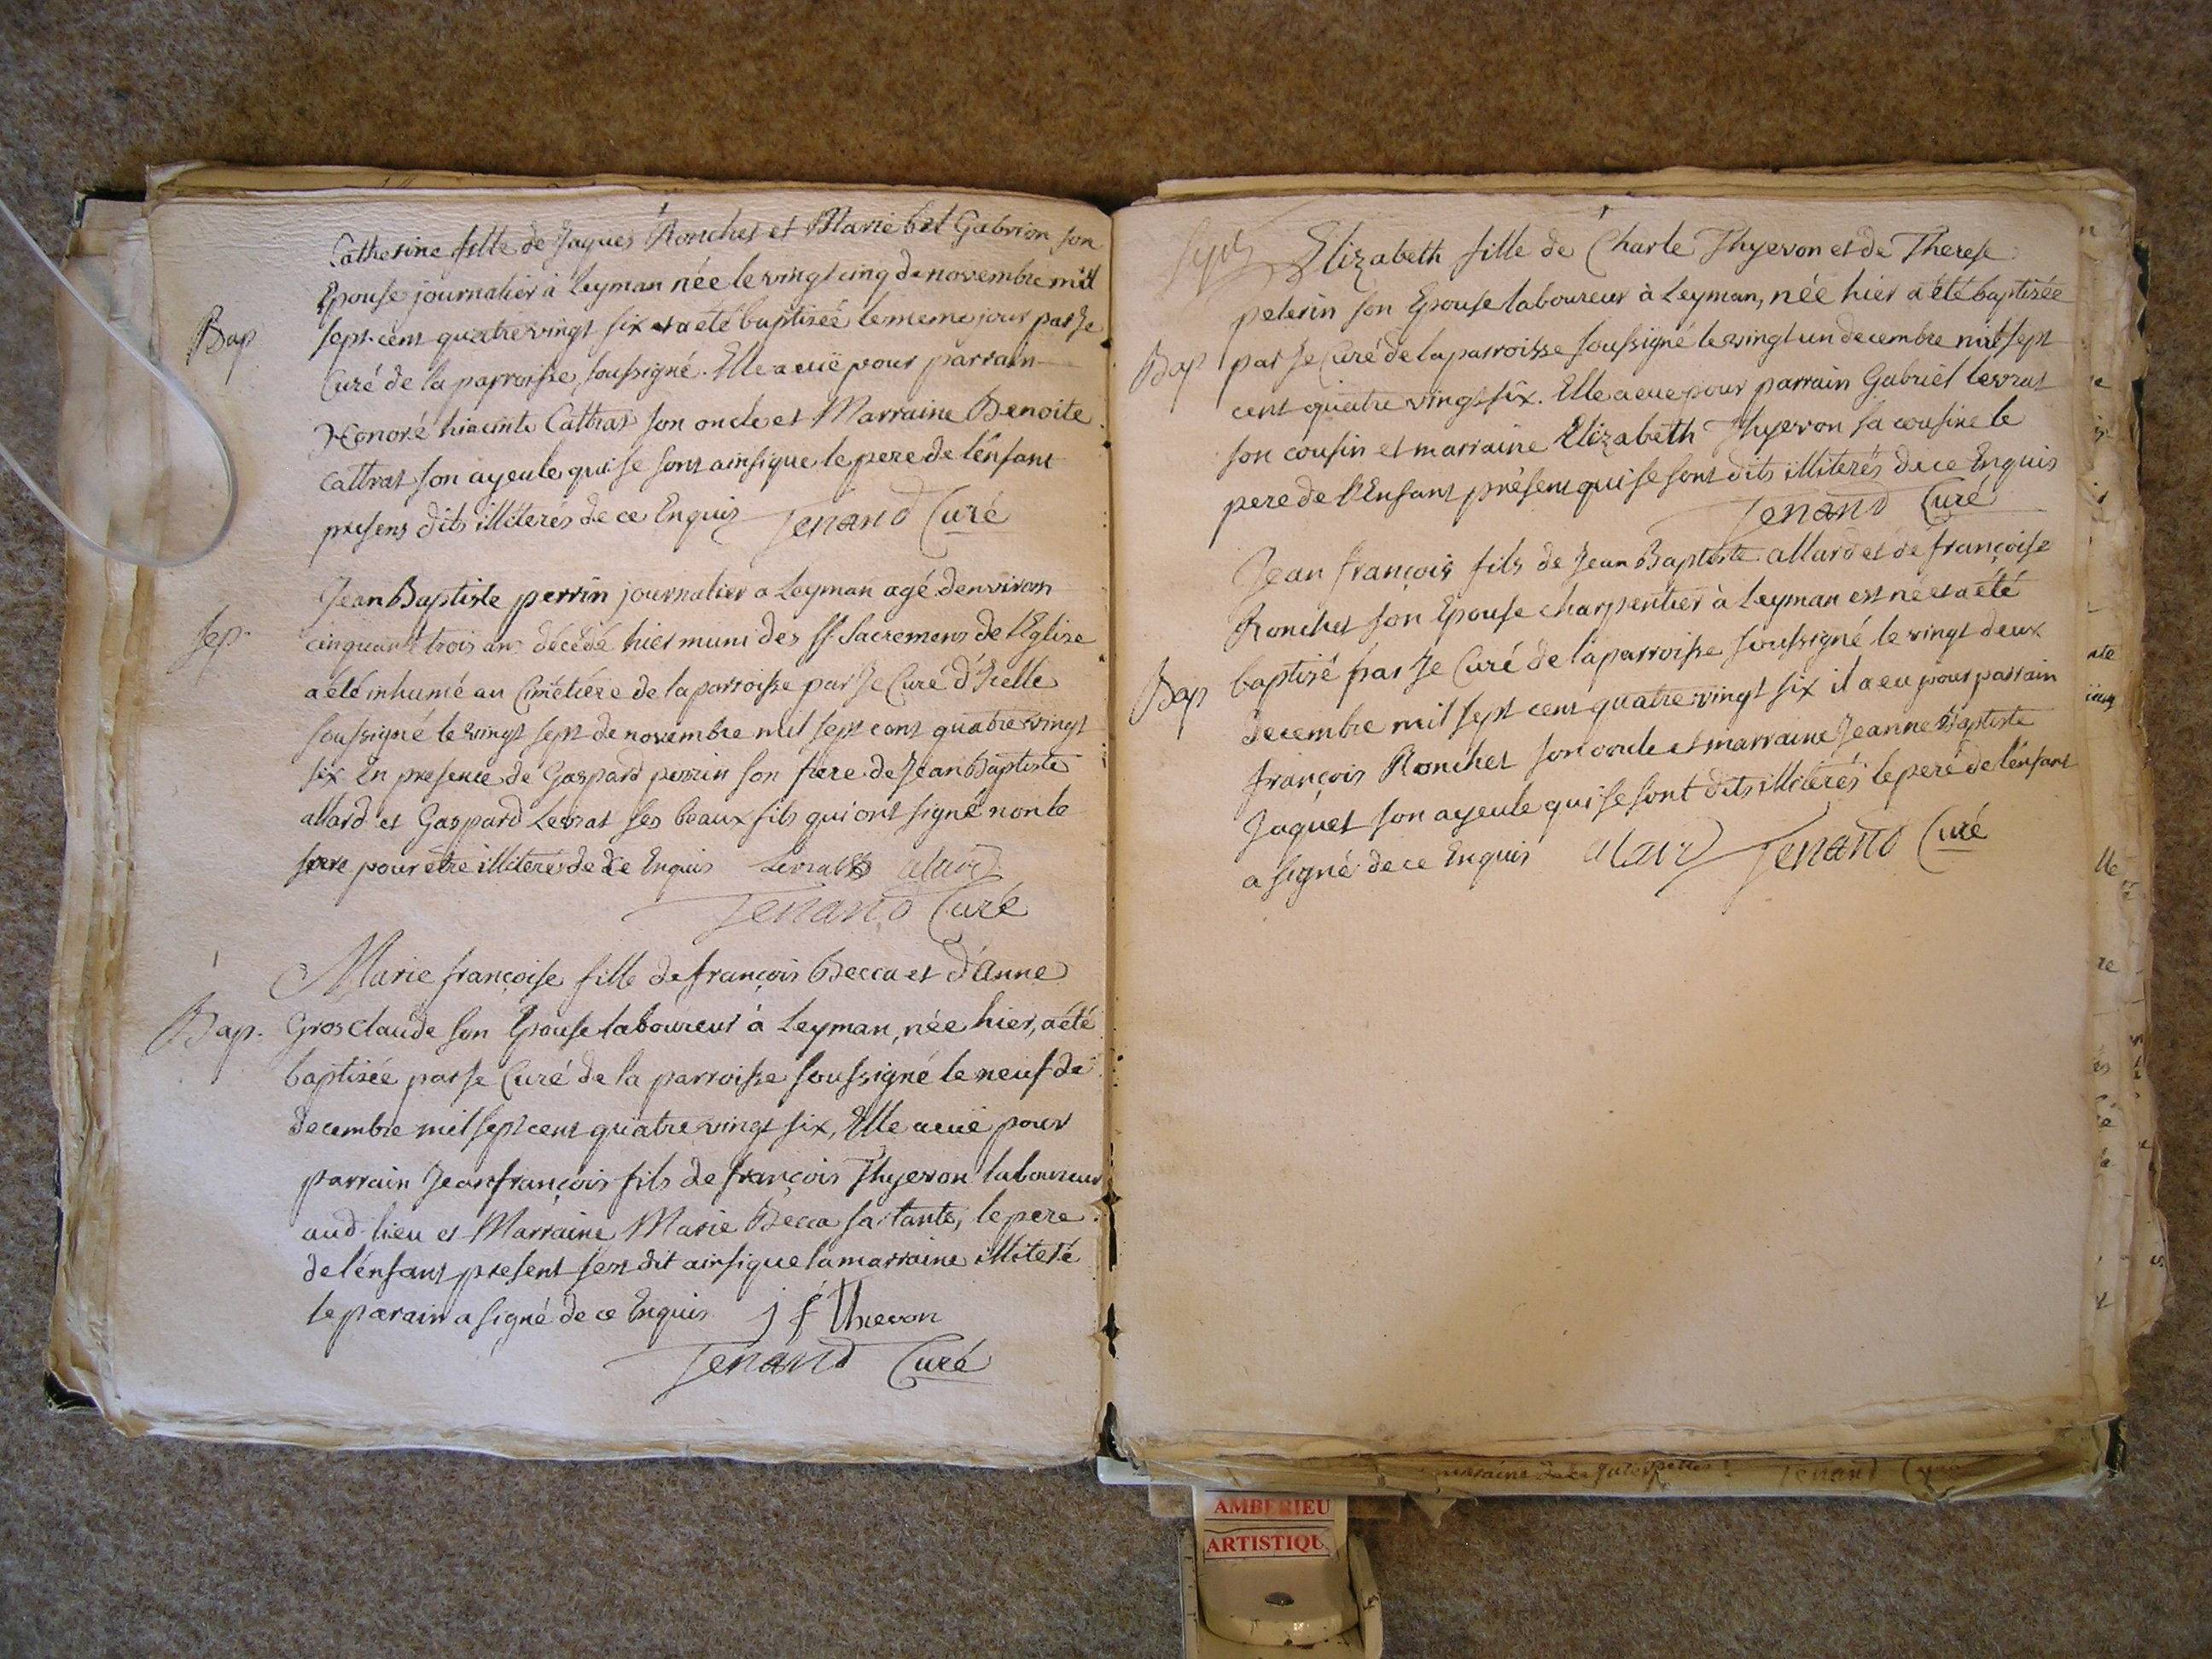 Catherine fille de Jaques Ronchet et Marie Gabrion son
Epouse journalier à Leyman née le vingt cinq de novembre mil
Bap
sept cent quatre vingt six et a été baptisée le meme jour par Je
Curé de la parroisse soussigné. Elle a euë pour parrain
Honoré hiacinte Cattras son oncle et Marraine Benoite
Cattrat son ayeule qui se sont ainsi que le pere de l'énfant
presens dits illiterés de ce Enquis Tenand Curé
Jean Baptiste perrin journalier a Leyman agé denviron
sep.
cinquante trois ans décédé hier muni des SS. Sacremens de l'Eglise
a été inhumé au Cimetiére de la parroisse par Je Curé d'Icelle
soussigné le vingt sept de novembre mil sept cent quatre vingt
six En presence de Gaspard perrin son frere de Jean Baptiste
allard et Gaspard Levrat ses beaux fils qui ont signé non le
frere pour être illiteré de ce Enquis Levrat alard
Tenand Curé
Marie françoise fille de françois Becca et d'Anne
Bap. Gros claude son Epouse laboureur à Leyman, née hier, a été
baptisée par Je Curé de la parroisse soussigné le neuf de
decembre mil sept cent quatre vingt six, Elle a euë pour
parrain Jean françois fils de françois Thyevon laboureur
aud. lieu et Marraine Marie Becca sa tante, le pere
de l'énfant present sest dit ainsi que la marraine illiteré
le parain a signé de ce Enquis j f thievon
Tenand Curé
Elizabeth fille de Charle Thyevon et de Therese
pelerin son Epouse laboureur à Leyman, née hier a été baptisée
Bap par Je Curé de la parroisse soussigné le vingt un decembre mil sept
cent quatre vingt six. Elle a eue pour parrain Gabriel levrat
son cousin et marraine Elizabeth Thyevon sa cousine le
pere de l'Enfant présent qui se sont dits illiterés de ce Enquis
Tenand Curé
Jean françois fils de Jean Baptiste allard et de françoise
Ronchet son Epouse charpentier à Leyman est né et a été
Bap baptisé par Je Curé de la parroisse soussigné le vingt deux
decembre mil sept cent quatre vingt six il a eu pour parrain
françois Ronchet son oncle et marraine Jeanne Baptiste
Jaquet son ayeule qui se sont dits illiterés le pere de l'énfant
a signé de ce Enquis alard Tenand Curé
AMBERIEU
ARTISTIQU